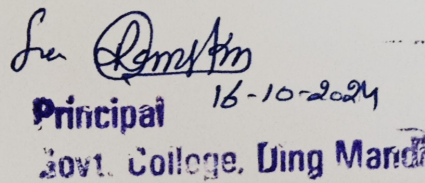 16-10-2024
Principal
Govt. College, Ding Mandi